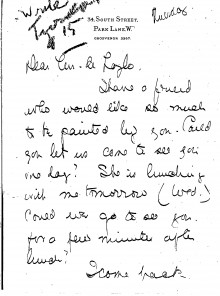 Tuesday
34, SOUTH STREET,
PARK LANE, W.
GROSVENOR
15
Dear Mr. de Laszlo.
I have a friend
who would like so much
to be painted by you. Could
you let us come to see you
one day? She is lunching
with me tomorrow (Wed.)
Could we go to see you
for a few minutes after
lunch?
I come back